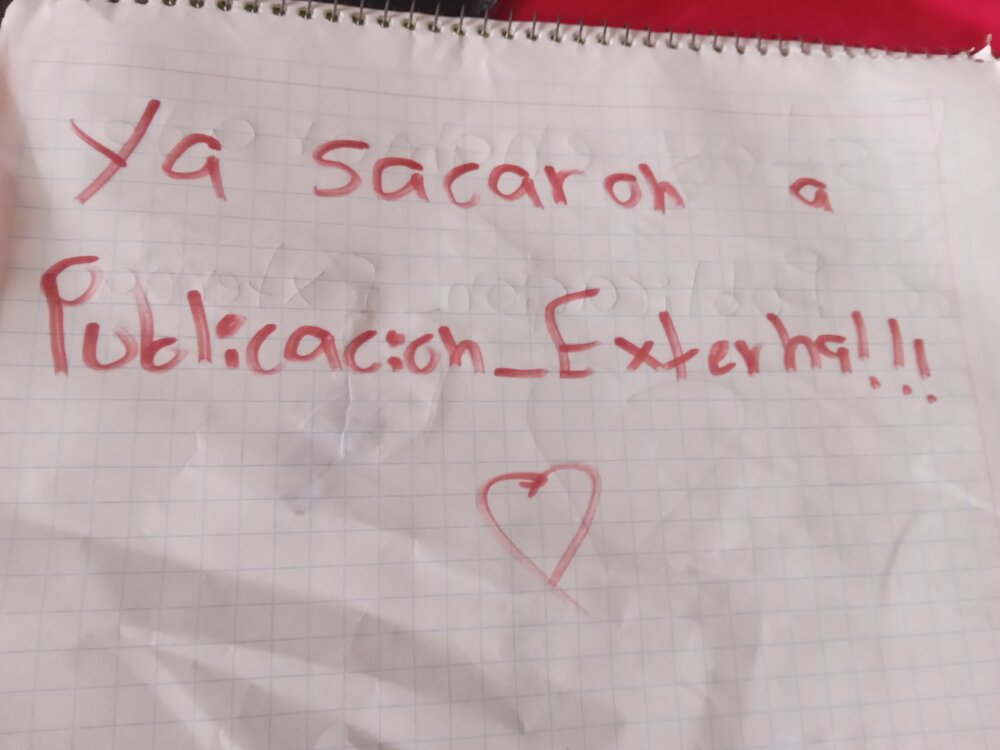 Ya sacaron a
Publicacion_Externa!!!